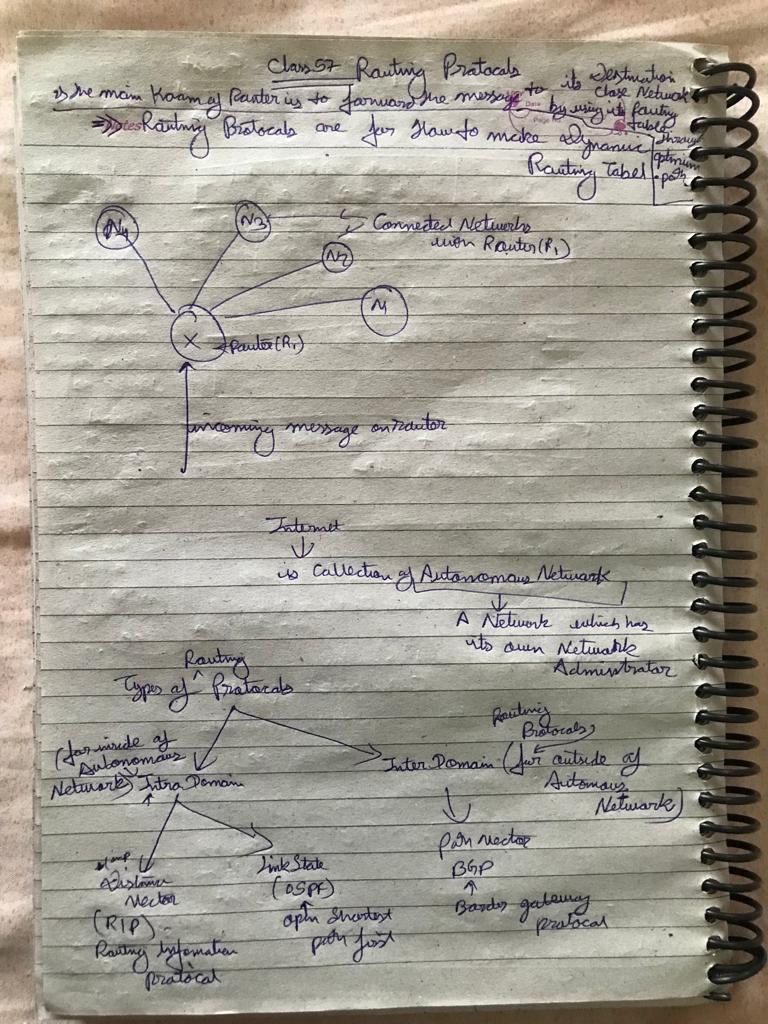 Class 57 Routing Protocols
→ The main Kaam of Router is to forward the message to its Destination
close Network
by using its Routing
table
through
optimum
path
⇒ Notes Routing Protocols are for How to make Dynamic
Date
Page
Routing Tabel
N4
N3
Connected Networks
with Router (R1)
N2
N1
X
Router (R1)
incoming message on router
Internet
↓
is Collection of Autonomous Network
↓
A Network which has
its own Network
Administrator
Routing
Types of ^ Protocols
(for inside of
Autonomous
Network) Intra Domain
Routing
Protocols
Inter Domain (for outside of
Automous
Network)
Distance
Vector
(RIP)
Routing Infomation
protocol
Link State
(OSPF)
↑
open Shortest
path first
Path Vector
BGP
↑
Border gateway
protocol